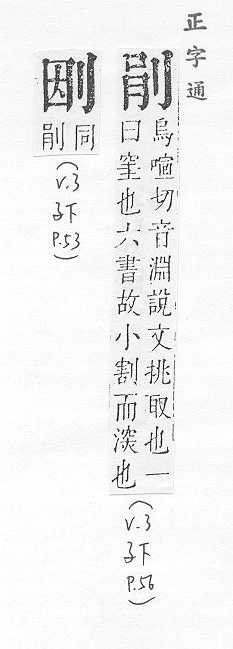 正字通
剈
烏喧切音淵說文挑取也一
曰窐也六書故小割而深也
(v.3
子下
P.56)
同
剈
(v.3
子下
P.53)